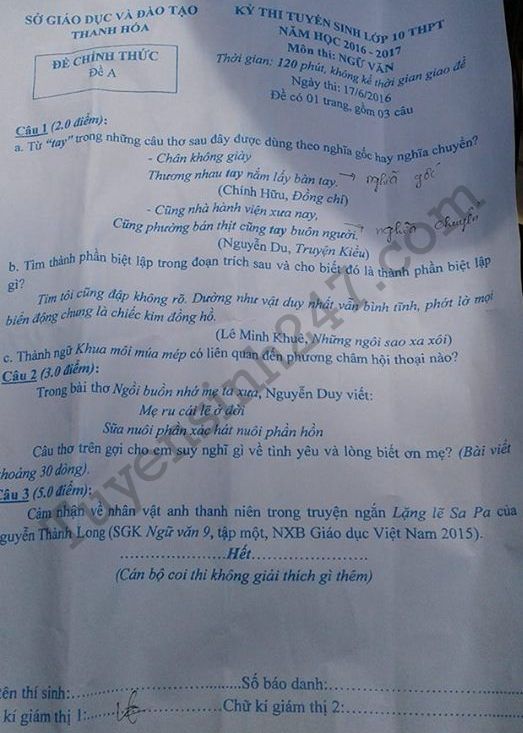 SỞ GIÁO DỤC VÀ ĐÀO TẠO
THANH HÓA
ĐỀ CHÍNH THỨC
Đề A
KỲ THI TUYỂN SINH LỚP 10 THPT
NĂM HỌC 2016 - 2017
Môn thi: NGỮ VĂN
Thời gian: 120 phút, không kể thời gian giao đề
Ngày thi: 17/6/2016
Đề có 01 trang, gồm 03 câu
Câu 1 (2.0 điểm):
a. Từ "tay" trong những câu thơ sau đây được dùng theo nghĩa gốc hay nghĩa chuyển?
- Chân không giày
Thương nhau tay nắm lấy bàn tay. → nghĩa gốc
(Chính Hữu, Đồng chí)
- Cũng nhà hành viện xưa nay,
Cũng phường bán thịt cũng tay buôn người. → nghĩa chuyển
(Nguyễn Du, Truyện Kiều)
b. Tìm thành phần biệt lập trong đoạn trích sau và cho biết đó là thành phần biệt lập
gì?
Tim tôi cũng đập không rõ. Dường như vật duy nhất vẫn bình tĩnh, phớt lờ mọi
biến động chung là chiếc kim đồng hồ.
(Lê Minh Khuê, Những ngôi sao xa xôi)
c. Thành ngữ Khua môi múa mép có liên quan đến phương châm hội thoại nào?
Câu 2 (3.0 điểm):
Trong bài thơ Ngồi buồn nhớ mẹ ta xưa, Nguyễn Duy viết:
Mẹ ru cái lẽ ở đời
Sữa nuôi phần xác hát nuôi phần hồn
Câu thơ trên gợi cho em suy nghĩ gì về tình yêu và lòng biết ơn mẹ? (Bài viết
khoảng 30 dòng).
Câu 3 (5.0 điểm):
Cảm nhận về nhân vật anh thanh niên trong truyện ngắn Lặng lẽ Sa Pa của
guyễn Thành Long (SGK Ngữ văn 9, tập một, NXB Giáo dục Việt Nam 2015).
Hết
(Cán bộ coi thi không giải thích gì thêm)
tên thí sinh: Số báo danh:
kí giám thị 1: Chữ kí giám thị 2:
Tuyensinh247.com